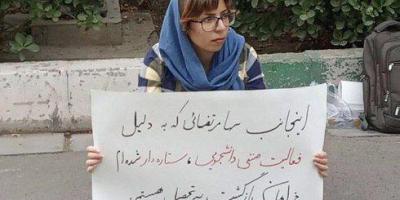 اینجانب سها مرتضائی که به دلیل
فعالیت صنفی دانشجویی، ستاره دار شده ام
خواهان بازگشت به تحصیل هستم